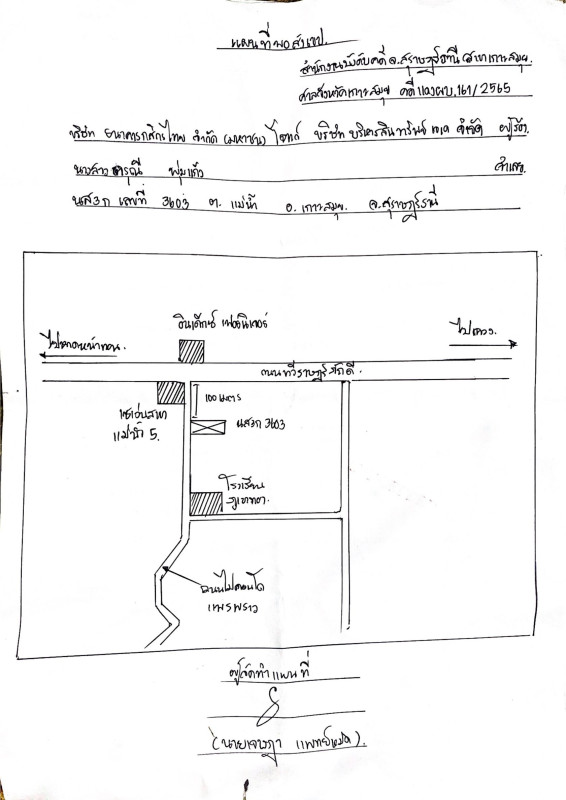 แผนที่พอสังเขป.
สำนักงานบังคับคดี จ.สุราษฎร์ธานี สาขาเกาะสมุย.
ศาลจังหวัดเกาะสมุย คดีแดง ผบ.161/2565
บริษัท ธนาคารกสิกรไทย จำกัด (มหาชน) โจทก์ บริษัท บริหารสินทรัพย์ เจเค จำกัด ผู้ร้อง.
นางสาว ดรุณี พุ่มแก้ว จำเลย.
นส3ก เลขที่ 3603 ต. แม่น้ำ อ. เกาะสมุย. จ.สุราษฎร์ธานี
อินเด็กซ์ เฟอร์นิเจอร์
ไปหาดหน้าทอน.
ไปเฉวง.
ถนนทวีราษฎร์ภักดี.
100 เมตร
เซเว่นสาขา
แม่น้ำ 5.
นส3ก 3603
โรงเรียน
ถนนไปคอนโด
แพรพราว
ผู้จัดทำแผนที่
(นายเจษฎา).